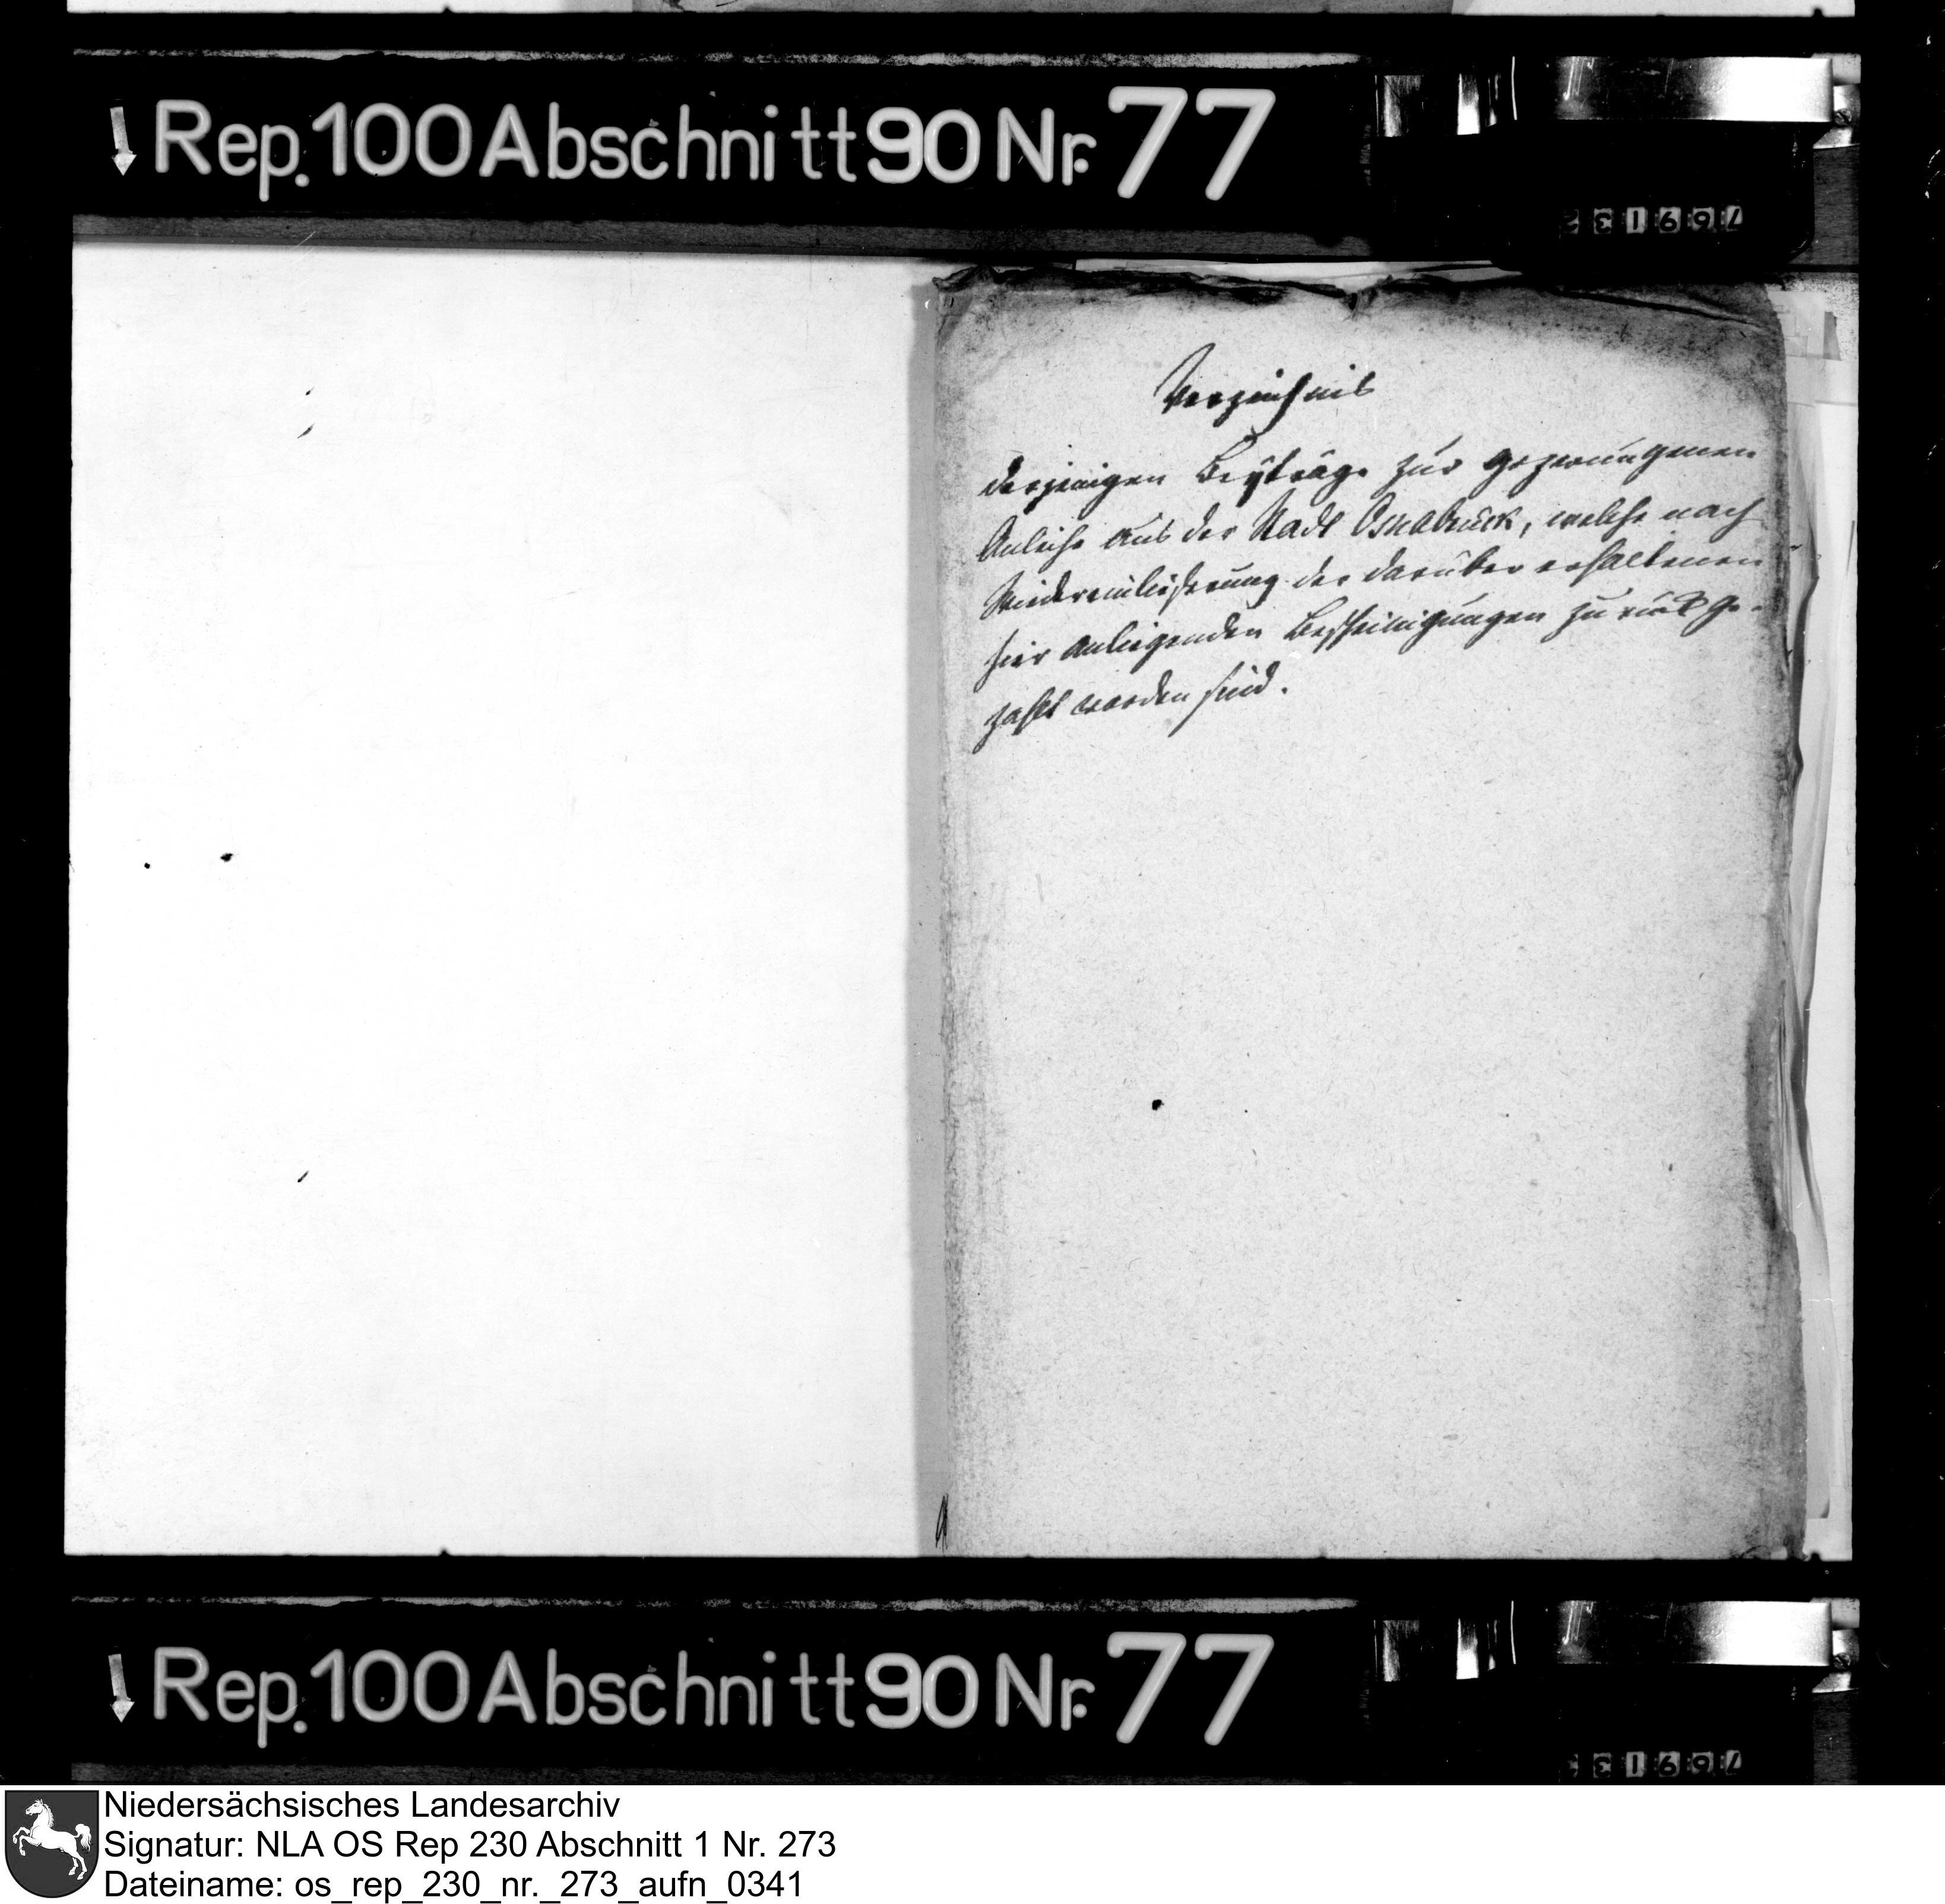 Rep. 100 Abschnitt 90 Nr. 77
Verzeichnis
derjenigen Beyträge zur gezwungenen
Anleihe aus der Stadt Osnabrück, welche nach
Wiedereinlieferung der darüber erhaltenen
hier anliegenden Bescheinigungen zurück ge-
zahlt worden sind.
Rep. 100 Abschnitt 90 Nr. 77
Niedersächsisches Landesarchiv
Signatur: NLA OS Rep 230 Abschnitt 1 Nr. 273
Dateiname: os_rep_230_nr._273_aufn_0341